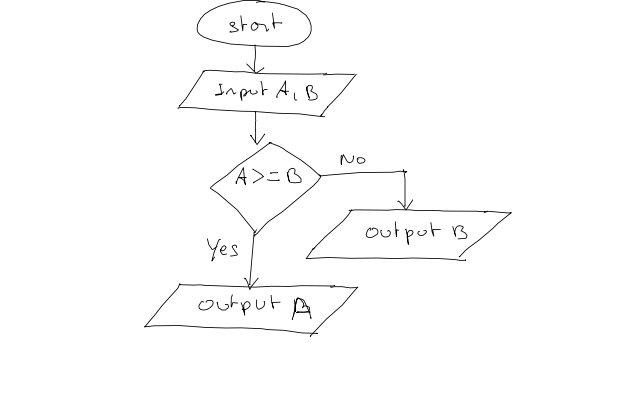 start
Input A, B
A>=B
No
output B
Yes
output A